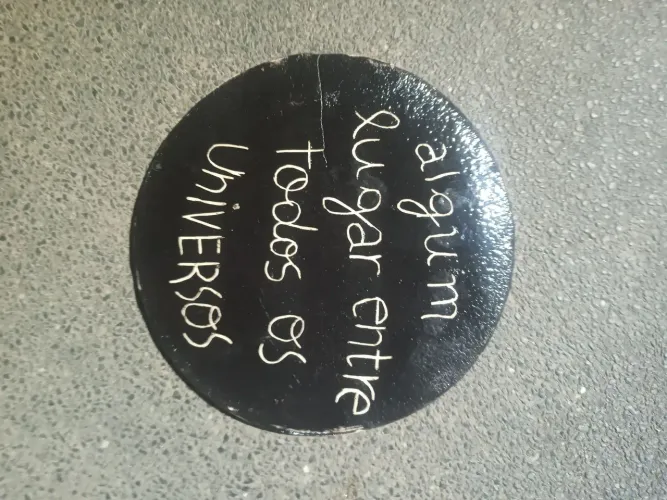 algum
lugar entre
todos os
UNIVERSOS